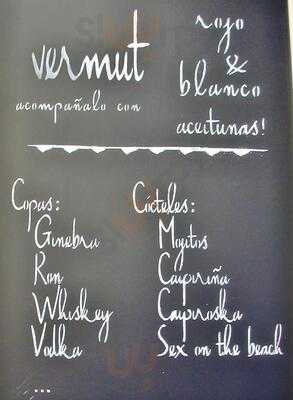 vermut rojo
& blanco
acompañalo con
aceitunas!
Copas:
Ginebra
Ron
Whiskey
Vodka
...
Cócteles:
Mojitos
Caipiriña
Caipiroska
Sex on the beach